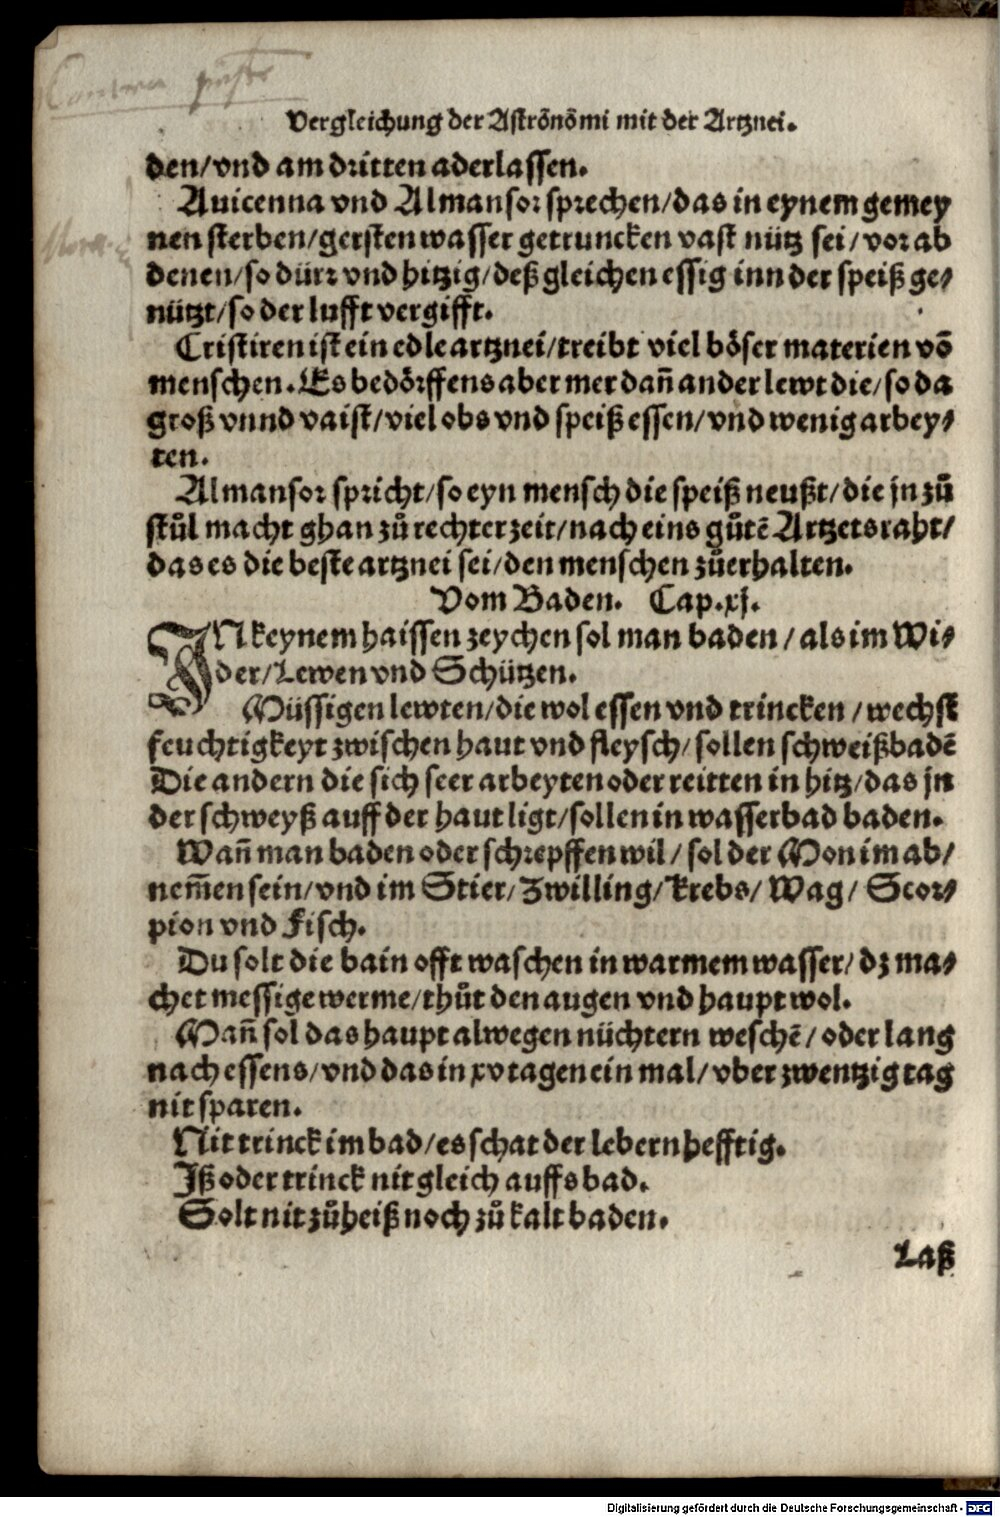 Contra pest
Vergleichung der Astrōnōmi mit der Artznei.
den/vnd am dritten aderlassen.
Auicenna vnd Almansor sprechen/das in eynem gemey
nen sterben/gersten wasser getruncken vast nütz sei/vorab
denen/so dürr vnd hitzig/deßgleichen essig inn der speiß ge⸗
nützt/so der lufft vergifft.
Cristiren ist ein edle artznei/treibt viel böser materien vō
menschen. Es bedörffens aber mer dañ ander lewt die/so da
groß vnnd vaist/viel obs vnd speiß essen/vnd wenig arbey⸗
ten.
Almansor spricht/so eyn mensch die speiß neußt/die jn zů
stůl macht ghan zů rechter zeit/nach eins gůtē Artzets raht/
das es die beste artznei sei/den menschen zůerhalten.
Vom Baden. Cap.xj.
IN keynem haissen zeychen sol man baden/als im Wi⸗
der/Lewen vnd Schützen.
Müssigen lewten/die wol essen vnd trincken/wechst
feuchtigkeyt zwischen haut vnd fleysch/sollen schweißbadē
Die andern die sich seer arbeyten oder reitten in hitz/das jn
der schweyß auff der haut ligt/sollen in wasserbad baden.
Wañ man baden oder schrepffen wil/sol der Mon im ab/
nem̄en sein/vnd im Stier/Zwilling/Krebs/Wag/Scor⸗
pion vnd Fisch.
Du solt die bain offt waschen in warmem wasser/dz ma⸗
chet messige werme/thůt den augen vnd haupt wol.
Mañ sol das haupt alwegen nüchtern weschē/oder lang
nach essens/vnd das in xv tagen ein mal/vber zwentzig tag
nit sparen.
Nit trinck im bad/es schat der lebern hefftig.
Iß oder trinck nit gleich auffs bad.
Solt nit zů heiß noch zů kalt baden.
Laß
Digitalisierung gefördert durch die Deutsche Forschungsgemeinschaft - DFG